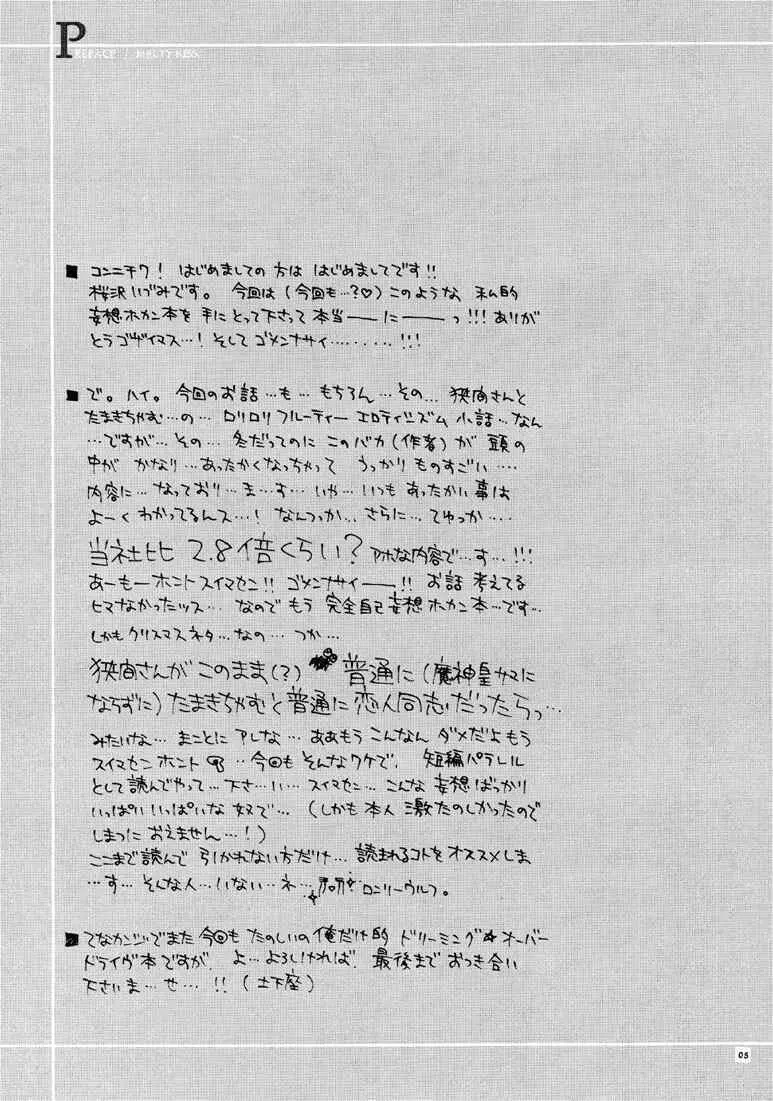 PREFACE / MELTY KISS
■ コンニチワ! はじめましての方は はじめましてです!!
桜沢いづみです。 今回は(今回も…?♡)このような 私的
妄想ホカン本を 手にとって下さって 本当——に——っ!!! ありが
とうゴザイマス…! そして ゴメンナサイ………!!!
■ で。ハイ。今回のお話…も…もちろん…その… 狭間さんと
たまきちゃむ…の… ロリロリ フルーティー エロティシズム 小話…なん
…ですが… その… 冬だってのに このバカ(作者)が 頭の
中が かなり…あったかくなっちゃって うっかり ものすごい…
内容に…なっており…ま…す… いや… いつも あったかい事は
よーく わかってるんス…! なんつっか… さらに… てゆっか…
当社比 2.8倍くらい? アホな内容で…す…!!!
あーもーホント スイマセン!! ゴメンナサイ——!! お話 考えてる
ヒマなかったッス… なので もう 完全自己妄想ホカン本…です…
しかも クリスマスネタ…なの… つか…
狭間さんが このまま(?) 普通に(魔神皇サマに
ならずに)たまきちゃむと普通に 恋人同志だったらっ…
みたいな… まことに アレな… ああもう こんなん ダメだよ もう
スイマセン ホント …今回も そんなワケで、 短編パラレル
として 読んでやって…下さ…い… スイマセン… こんな 妄想ばっかり
いっぱい いっぱいな 奴で… (しかも 本人 激たのしかったので
しまつに おえません…!)
ここまで読んで 引かれない方だけ… 読まれるコトを オススメしま
…す… そんな人…いない…ネ… ロンリーウルフ。
■ てなカンジでまた 今回も たのしいの俺だけ的 ドリーミング★オーバー
ドライヴ本ですが、 よ…よろしければ、最後まで おつき合い
下さいま…せ…!! (土下座)
05